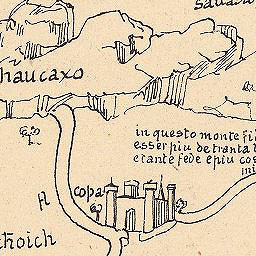 haucaxo
in questo monte si
esser piu de tranta
etante fede epiu cos
copa
choich